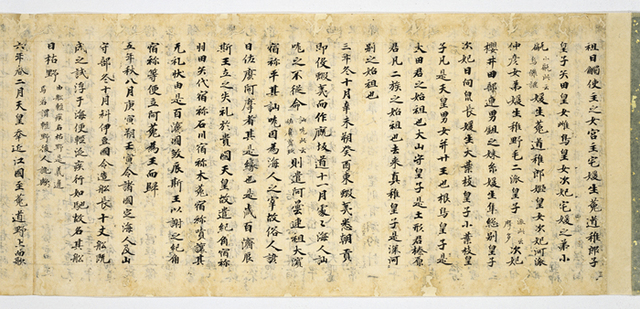 祖日觸使主之女宮主宅媛生菟道稚郎子
皇子矢田皇女雌鳥皇女次妃宅媛之弟小
甂媛生菟道稚郎姬皇女次妃河派
仲彦女弟媛生稚野毛二派皇子派此云摩多次妃
櫻井田部連男鉏之妹糸媛生隼總別皇子
次妃日向泉長媛生大葉枝皇子小葉枝皇
子凡是天皇男女并廿王也根鳥皇子是
大田君之始祖也大山守皇子是土形君榛原
君凡二族之始祖也去来真稚皇子是深河
別之始祖也
三年冬十月辛未朔癸酉東蝦夷悉朝貢
即役蝦夷而作厩坂道十一月處々海人訕
哤之不従命則遣阿曇連祖大濱
宿祢平其訕哤因為海人之宰故俗人諺
曰佐麼阿摩者其是縁也是歳百濟辰
斯王立之失礼於貴國天皇故遣紀角宿祢
羽田矢代宿祢石川宿祢木菟宿祢嘖讓其
无礼状由是百濟國敓辰斯王以謝之紀角
宿祢等便立阿花為王而歸
五年秋八月庚寅朔壬寅令諸國定海人及山
守部冬十月科伊豆國令造舩長十丈舩既
成之試浮于海便輕泛疾行如馳故名其舩
曰枯野由舩輕疾名枯野是義違焉若謂輕野後人訛歟
六年春二月天皇幸近江國至菟道野上而歌